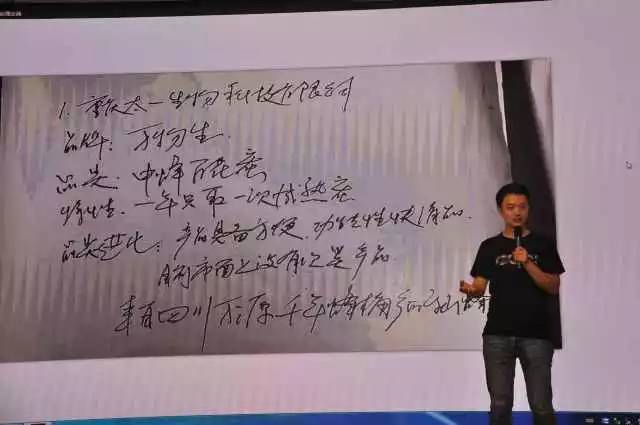 1. 重庆太一生物科技有限公司
品牌：万物生.
品类：中蜂百花蜜
特性：一年只取一次成熟蜜
品类进化：产品具备方便、功能性快消品.
目前市面上没有这类产品
来自四川